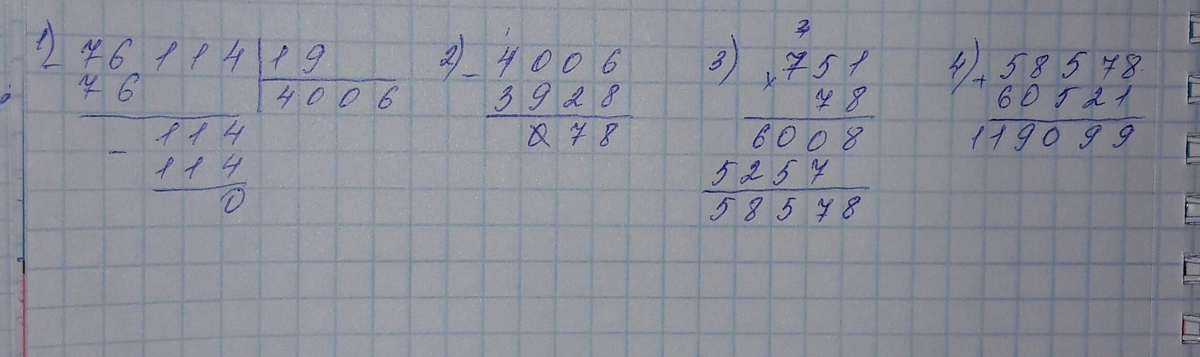 1) 76114 | 19
- 76 | 4006
- 114
114
0
2) - 4006
3928
078
3) × 751
78
6008
5257
58578
4) + 58578
60521
119099